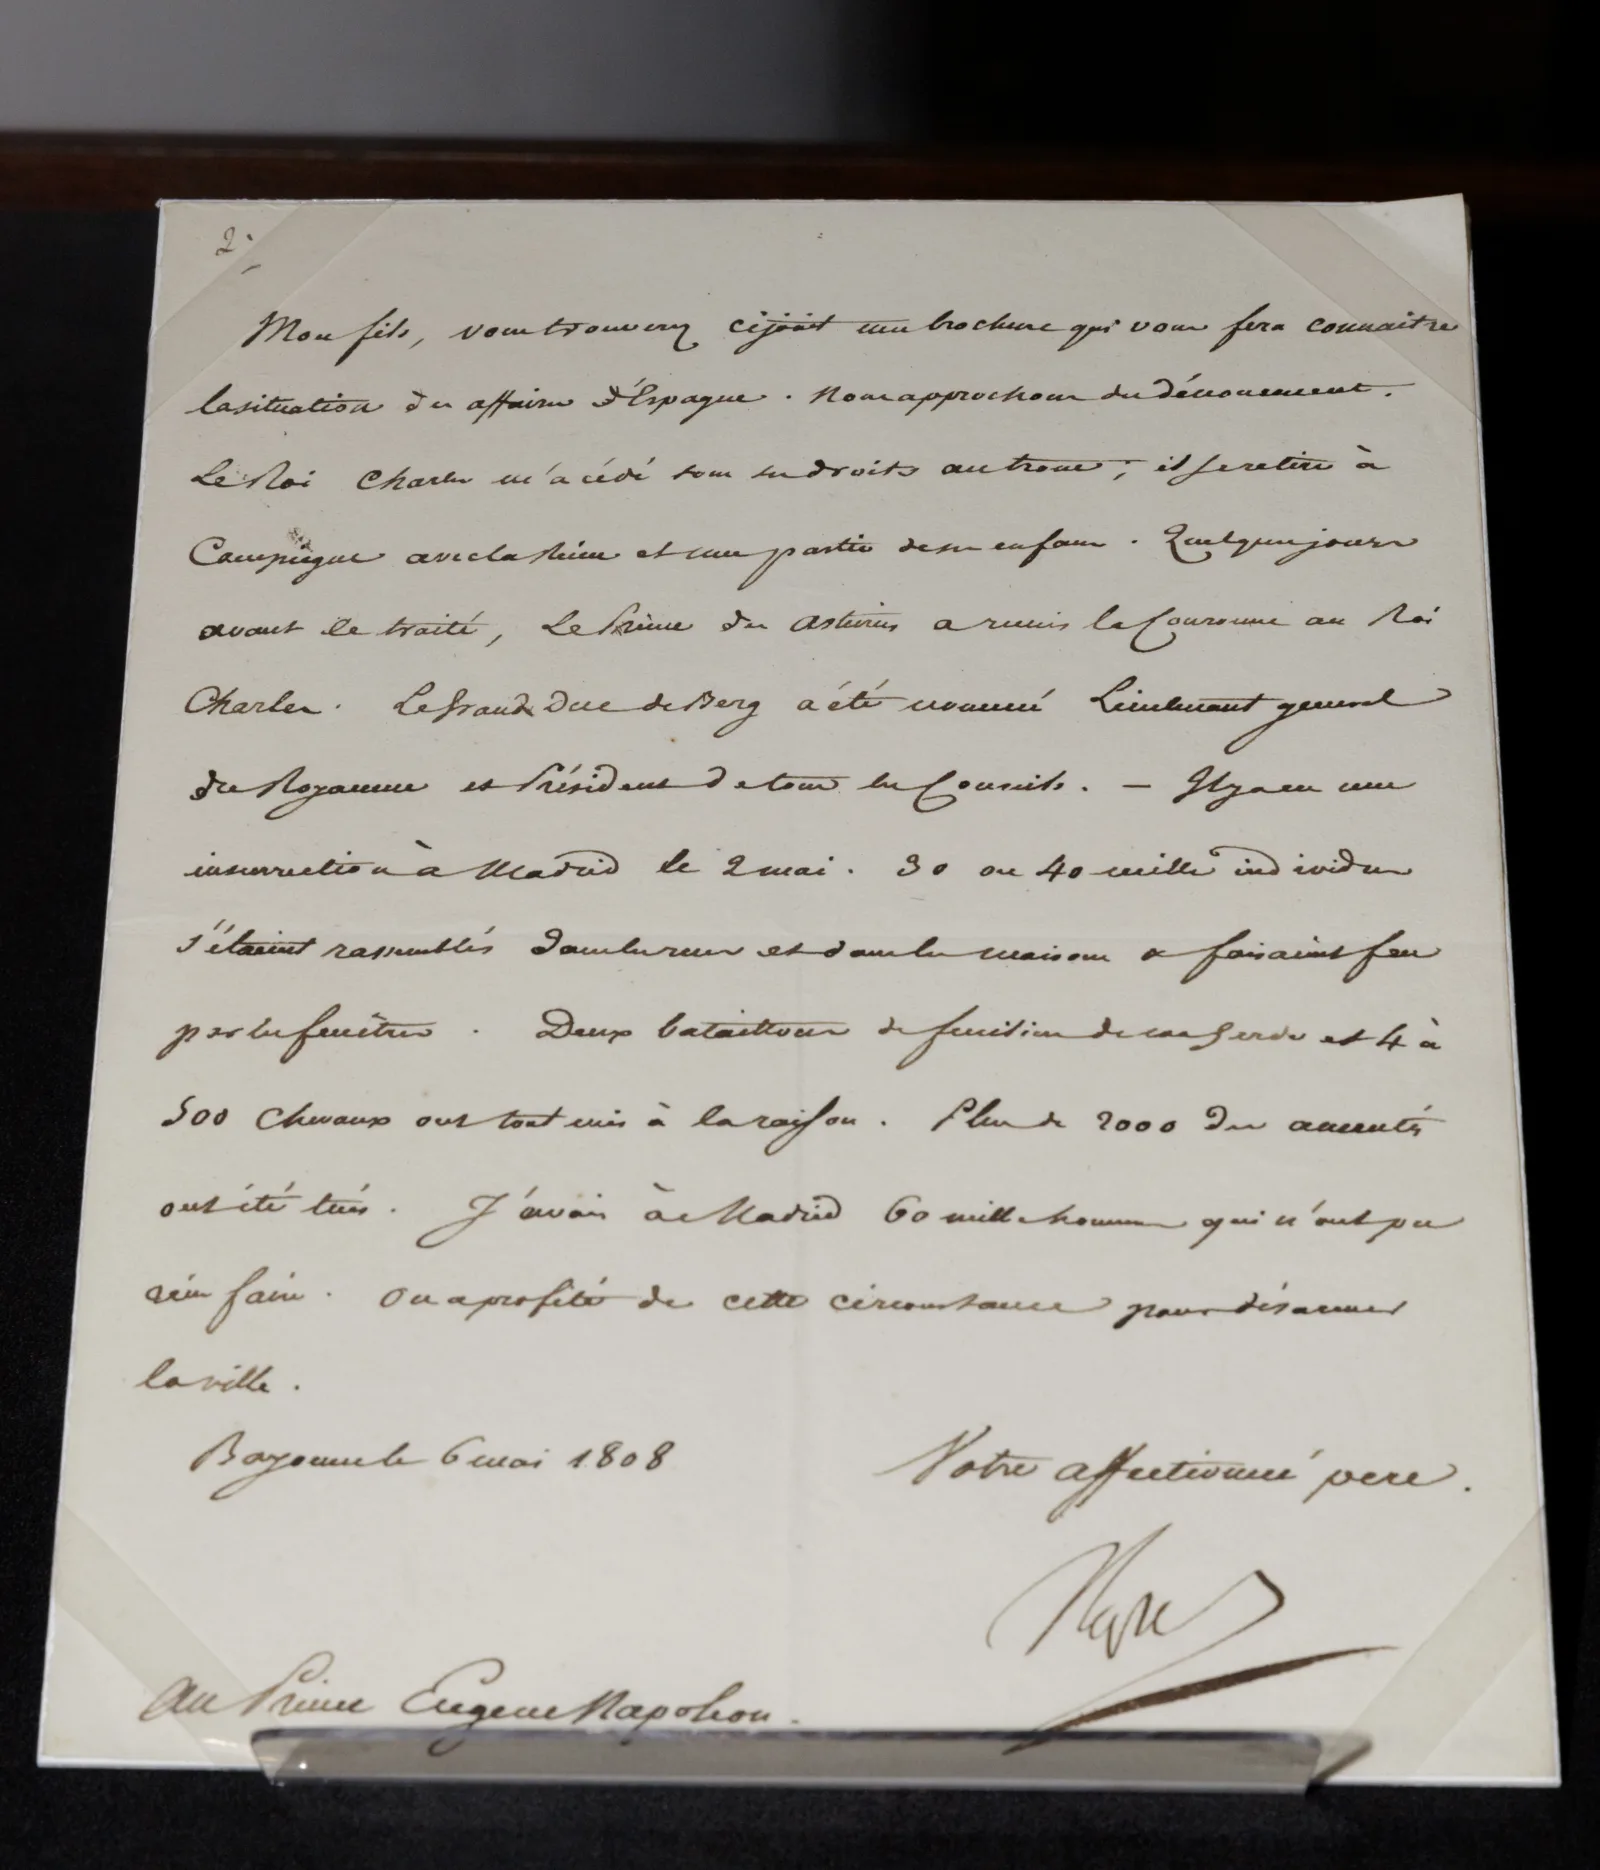 2.
Mon fils, vous trouverez cijoint une brochure qui vous fera connaitre
la situation des affaires d'Espagne. Nous approchons du dénouement.
Le Roi Charles m'a cédé tous ses droits au trone; il se retire à
Compiègne avec la Reine et une partie de ses enfans. Quelques jours
avant le traité, Le Prince des Asturies a remis la Couronne au Roi
Charles. Le Grand Duc de Berg a été nommé Lieutenant general
du Royaume et Président de tous les Conseils. — Il y a eu une
insurrection à Madrid le 2 mai. 30 ou 40 mille individus
s'étaient rassemblés dans les rues et dans les maisons & faisaient feu
par les fenêtres. Deux bataillons de fusiliers de ma Garde et 4 à
500 chevaux ont tout mis à la raison. Plus de 2000 des ameutés
ont été tués. J'avais à Madrid 60 mille hommes qui n'ont pu
rien faire. On a profité de cette circonstance pour désarmer
la ville.
Bayonne le 6 mai 1808
Votre affectionné pere.
Napole
Au Prince Eugene Napoleon.